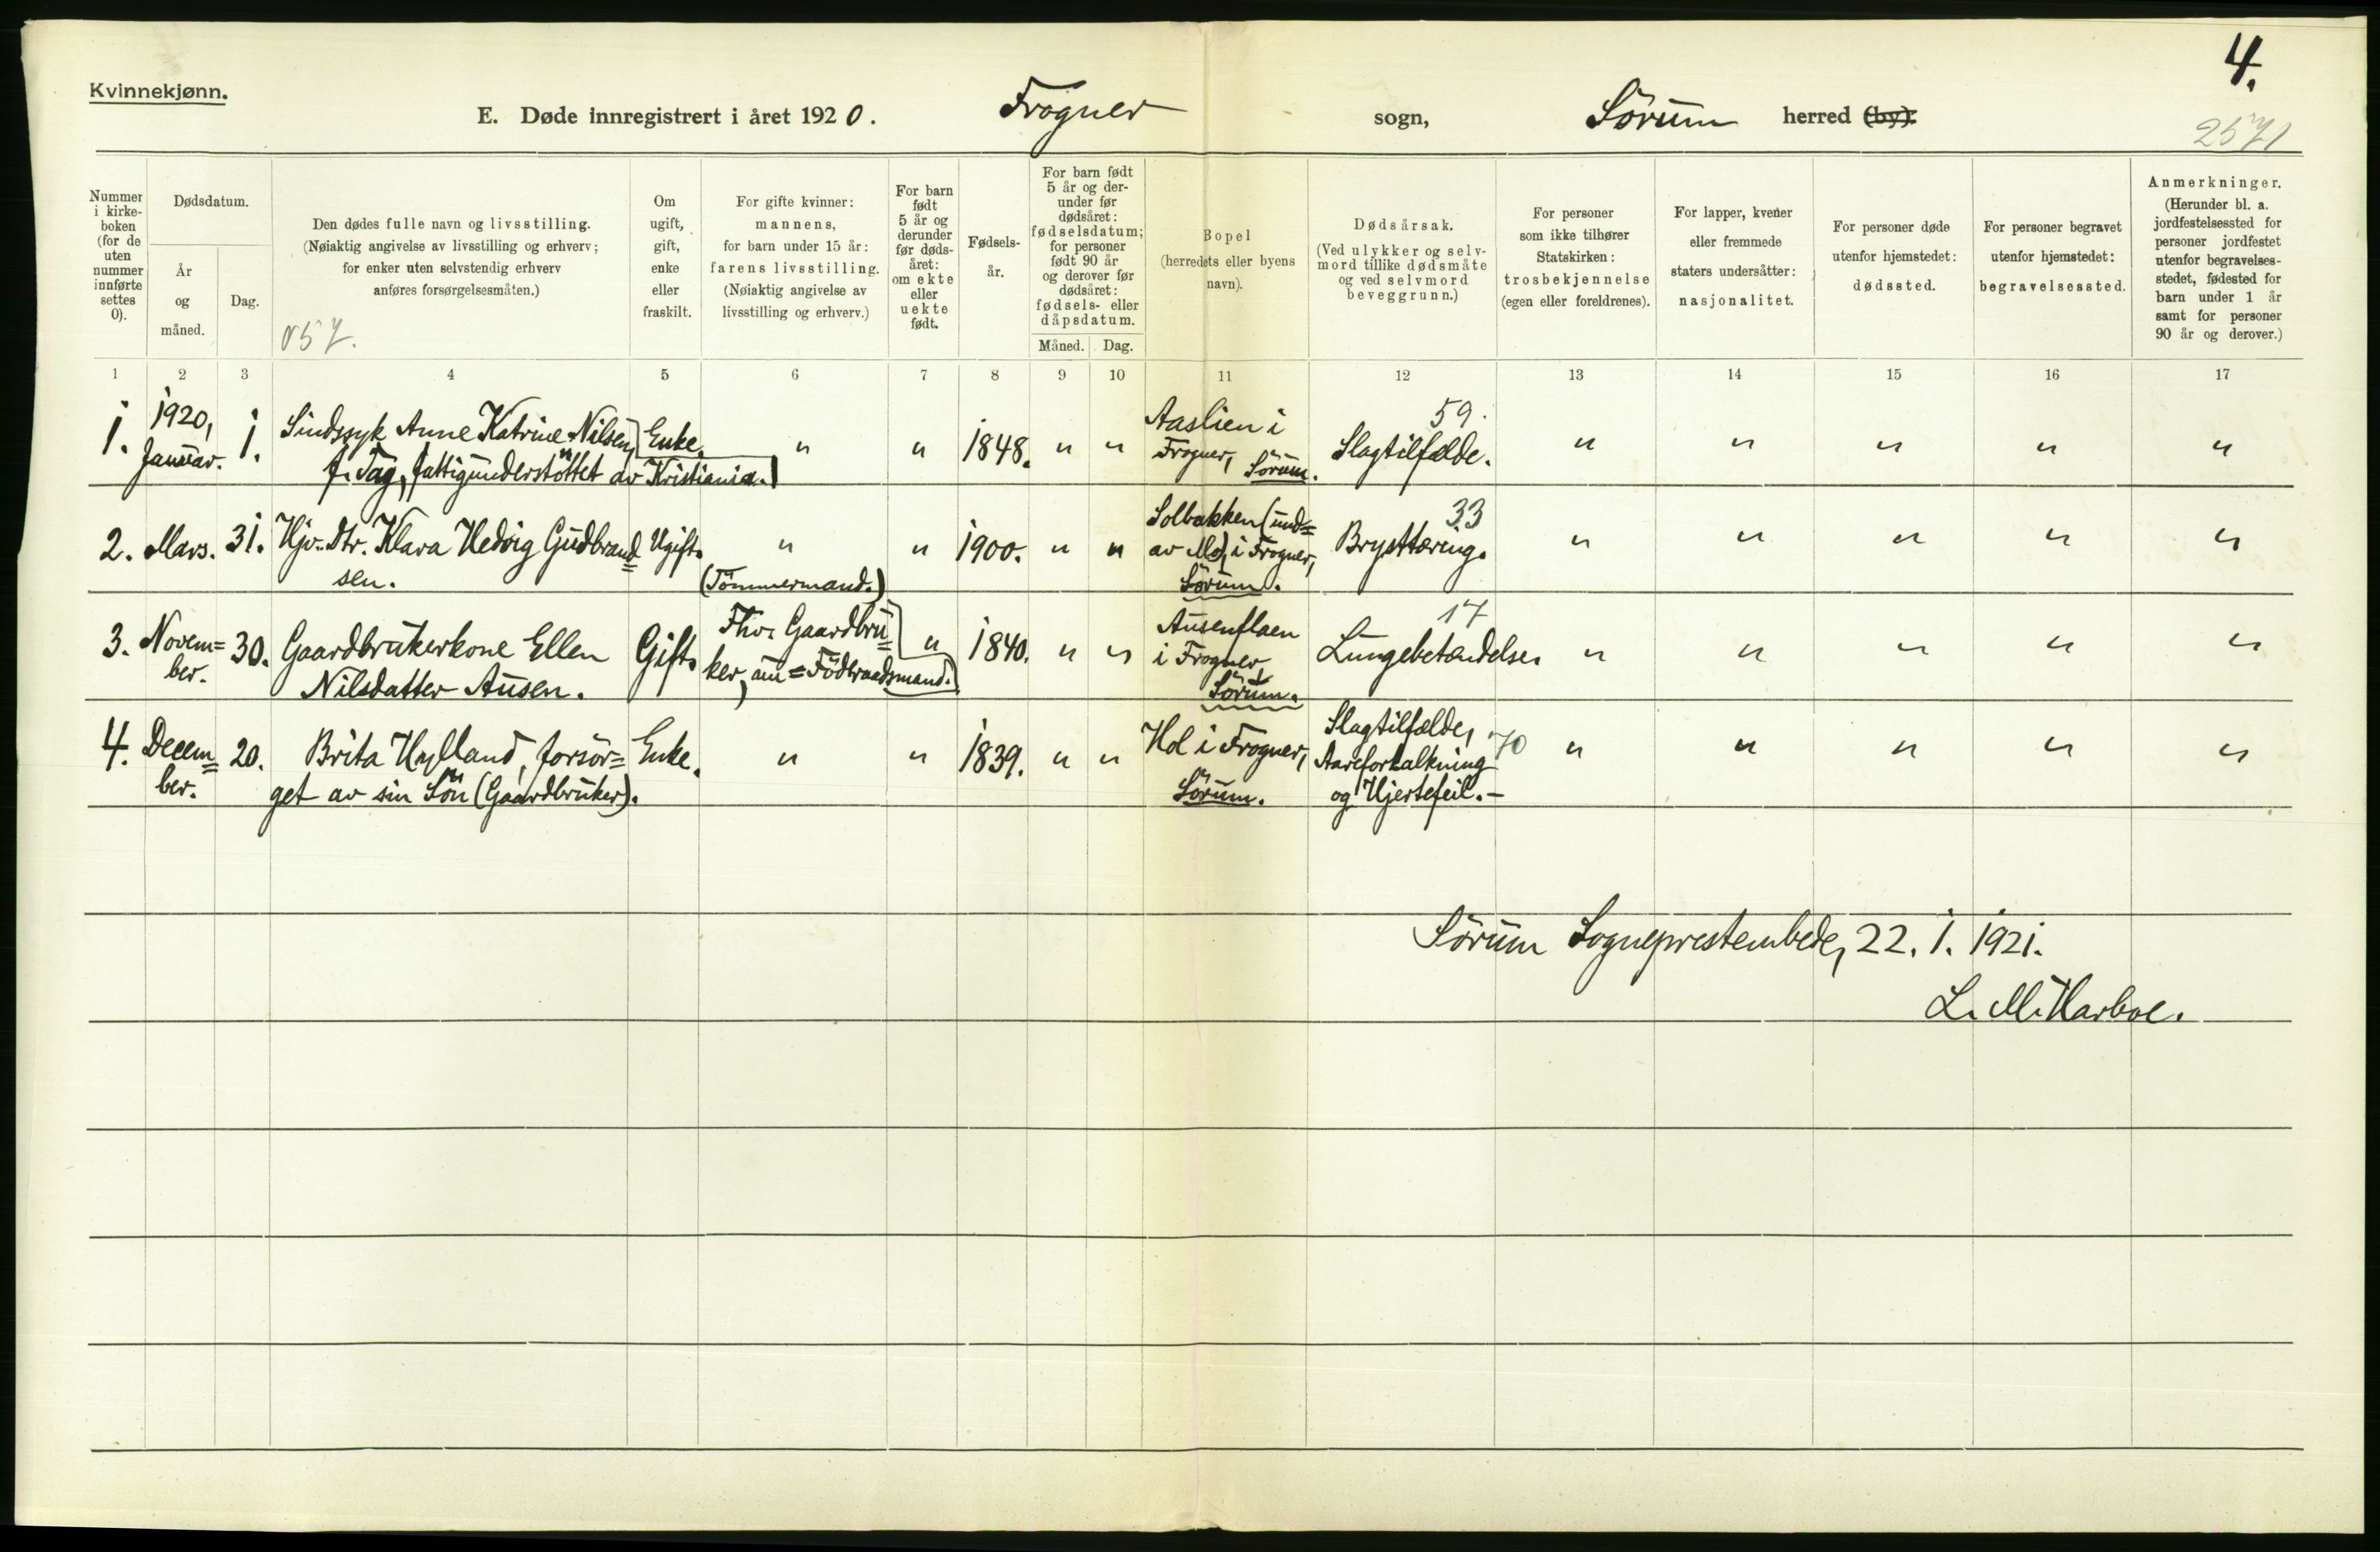 4.
Kvinnekjønn.
E. Døde innregistrert i året 1920. Frogner sogn, Sørum herred (by).
2571
Nummer i kirkeboken (for de uten nummer innførte settes 0).
Dødsdatum.
År og måned.
Dag.
Den dødes fulle navn og livsstilling.
(Nøiaktig angivelse av livsstilling og erhverv;
for enker uten selvstendig erhverv
anføres forsørgelsesmåten.)
057.
Om ugift, gift, enke eller fraskilt.
For gifte kvinner:
mannens,
for barn under 15 år:
farens livsstilling.
(Nøiaktig angivelse av
livsstilling og erhverv.)
For barn født 5 år og derunder før dødsåret: om ekte eller uekte født.
Fødselsår.
For barn født 5 år og derunder før dødsåret: fødselsdatum; for personer født 90 år og derover før dødsåret: fødsels- eller dåpsdatum.
Måned. Dag.
Bopel
(herredets eller byens
navn).
Dødsårsak.
(Ved ulykker og selv-
mord tillike dødsmåte
og ved selvmord
beveggrunn.)
For personer
som ikke tilhører
Statskirken:
trosbekjennelse
(egen eller foreldrenes).
For lapper, kvener
eller fremmede
staters undersåtter:
nasjonalitet.
For personer døde
utenfor hjemstedet:
dødssted.
For personer begravet
utenfor hjemstedet:
begravelsessted.
Anmerkninger.
(Herunder bl. a.
jordfestelsessted for
personer jordfestet
utenfor begravelses-
stedet, fødested for
barn under 1 år
samt for personer
90 år og derover.)
1 2 3 4 5 6 7 8 9 10 11 12 13 14 15 16 17
1. 1920, Januar. 1. Sindssyk Anne Katrine Nilsen, f. Tag, fattigunderstöttet av Kristiania. Enke. " " 1848. " " Aaslien i Frogner, Sörum. 59. Slagtilfælde. " " " " "
2. Mars. 31. Hjv. Dtr. Klara Hedvig Gudbrand=sen. Ugift. " " 1900. " " Solbakken (und= av Mo) i Frogner, Sörum. 33 Brysttæring. " " " " "
3. Novem=ber. 30. Gaardbrukerkone Ellen Nilsdatter Ausen. Gift. (Tömmermand.) Fhv. Gaardbru=ker, nu=Födraadsmand. " 1840. " " Ausenflaen i Frogner, Sörum. 17 Lungebetændelse. " " " " "
4. Decem=ber. 20. Brita Hylland, forsör=get av sin Sön (Gaardbruker). Enke. " " 1839. " " Hol i Frogner, Sörum. Slagtilfælde, Aareforkalkning og Hjertefeil.- 70 " " " " "
Sörum Sogneprestembede, 22. 1. 1921.
L. M. Harboe.